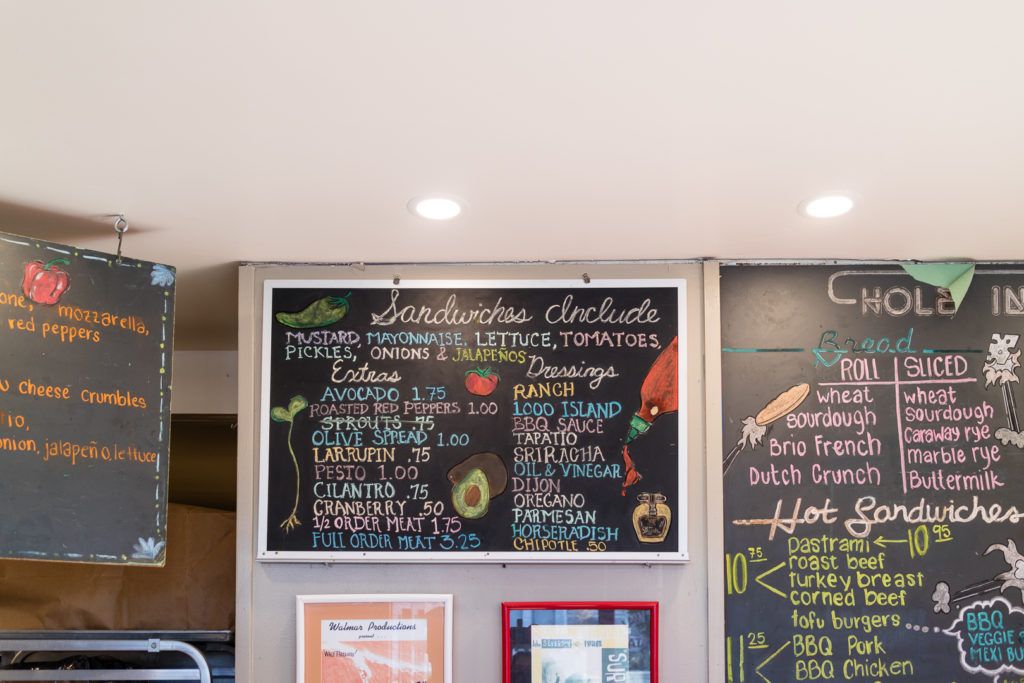 mozzarella,
red peppers
cheese crumbles
onion, jalapeño, lettuce
Sandwiches Include
MUSTARD, MAYONNAISE, LETTUCE, TOMATOES,
PICKLES, ONIONS & JALAPEÑOS
Extras
AVOCADO 1.75
ROASTED RED PEPPERS 1.00
SPROUTS .75
OLIVE SPREAD 1.00
LARRUPIN .75
PESTO 1.00
CILANTRO .75
CRANBERRY .50
1/2 ORDER MEAT 1.75
FULL ORDER MEAT 3.25
Dressings
RANCH
1000 ISLAND
BBQ SAUCE
TAPATIO
SRIRACHA
OIL & VINEGAR
DIJON
OREGANO
PARMESAN
HORSERADISH
CHIPOTLE .50
Walmar Productions
present...
SUR
HOLE IN
Bread
ROLL
wheat
sourdough
Brio French
Dutch Crunch
SLICED
wheat
sourdough
Caraway rye
marble rye
Buttermilk
Hot Sandwiches
10.75
pastrami 10.95
roast beef
turkey breast
corned beef
tofu burgers
11.25
BBQ Pork
BBQ Chicken
BBQ
VEGGIE
MEXI BU